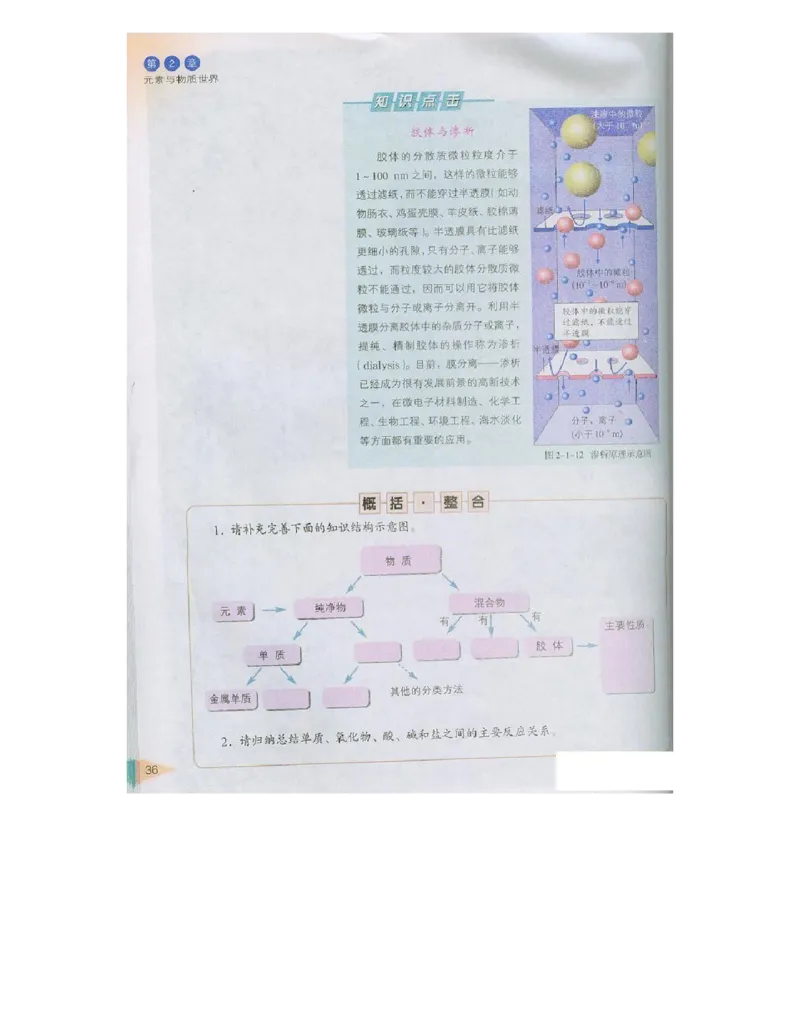 第2章
元素与物质世界
知识点击
胶体与渗析
胶体的分散质微粒粒度介于
1~100 nm之间，这样的微粒能够
透过滤纸，而不能穿过半透膜（如动
物肠衣、鸡蛋壳膜、羊皮纸、胶棉薄
膜、玻璃纸等）。半透膜具有比滤纸
更细小的孔隙，只有分子、离子能够
透过，而粒度较大的胶体分散质微
粒不能通过，因而可以用它将胶体
微粒与分子或离子分离开。利用半
透膜分离胶体中的杂质分子或离子，
提纯、精制胶体的操作称为渗析
（dialysis）。目前，膜分离——渗析
已经成为很有发展前景的高新技术
之一，在微电子材料制造、化学工
程、生物工程、环境工程、海水淡化
等方面都有重要的应用。
浊液中的微粒
（大于10⁻⁷m）
滤纸
胶体中的微粒
（10⁻⁷~10⁻⁹m）
胶体中的微粒能穿
过滤纸，不能透过
半透膜
半透膜
分子、离子
（小于10⁻⁹m）
图2-1-12 渗析原理示意图
概括·整合
1．请补充完善下面的知识结构示意图。
物质
元素
纯净物
混合物
有
有
有
主要性质：
单质
胶体
金属单质
其他的分类方法
2．请归纳总结单质、氧化物、酸、碱和盐之间的主要反应关系。
36